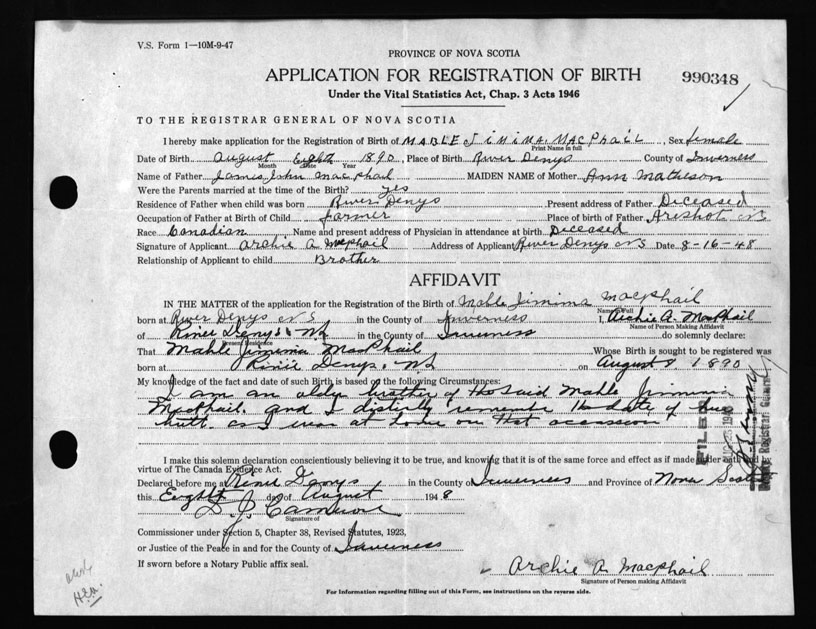 V.S. Form 1—10M-9-47
PROVINCE OF NOVA SCOTIA
APPLICATION FOR REGISTRATION OF BIRTH
990348
Under the Vital Statistics Act, Chap. 3 Acts 1946
TO THE REGISTRAR GENERAL OF NOVA SCOTIA
I hereby make application for the Registration of Birth of MABLE JIMIMA MACPHAIL, Sex female
Print Name in full
Date of Birth August Eighth 1890, Place of Birth River Denys County of Inverness
Month Date Year
Name of Father James John MacPhail MAIDEN NAME of Mother Ann Matheson
Were the Parents married at the time of the Birth? yes
Residence of Father when child was born River Denys Present address of Father Deceased
Occupation of Father at Birth of Child farmer Place of birth of Father Arishot NS
Race Canadian Name and present address of Physician in attendance at birth Deceased
Signature of Applicant Archie A Macphail Address of Applicant River Denys NS Date 8-16-48
Relationship of Applicant to child Brother
AFFIDAVIT
IN THE MATTER of the application for the Registration of the Birth of Mable Jimima Macphail
Name in Full
born at River Denys N S in the County of Inverness I, Archie A. MacPhail
Name of Person Making Affidavit
of River Denys NS in the County of Inverness do solemnly declare:
Present Residence
That Mable Jimima MacPhail Whose Birth is sought to be registered was
born at River Denys. NS on August 8 1890
My knowledge of the fact and date of such Birth is based on the following Circumstances:
I am an older brother of the said Mable Jimima
MacPhail. and I distinctly remember the date of her
birth as I was at home on that occassion
FILED
I make this solemn declaration conscientiously believing it to be true, and knowing that it is of the same force and effect as if made under oath and by
virtue of The Canada Evidence Act.
Declared before me at River Denys in the County of Inverness and Province of Nova Scotia
this Eighth day of August 1948
D. J. Cameron
Signature of
Commissioner under Section 5, Chapter 38, Revised Statutes, 1923,
or Justice of the Peace in and for the County of Inverness
If sworn before a Notary Public affix seal.
Archie A Macphail
Signature of Person making Affidavit
For Information regarding filling out of this Form, see instructions on the reverse side.